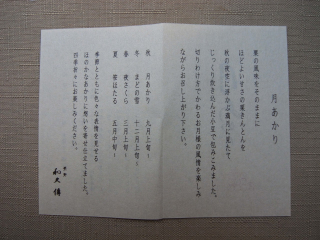 月あかり
栗の風味をそのままに
ほどよい甘さの栗きんとんを
秋の夜空に浮かぶ満月に見たて、
じっくり炊き込んだ小豆で包みこみました。
切りわけ方でかわるお月様の風情を楽しみ
ながらお召し上がり下さい。
秋 月あかり 九月上旬〜
冬 まどの雪 十二月上旬〜
春 夜さくら 三月上旬〜
夏 蛍ほたる 五月中旬〜
季節とともに色々な表情を見せる
ほのかなあかりに想いを寄せ仕立てました。
四季折々にお楽しみください。
和久傳